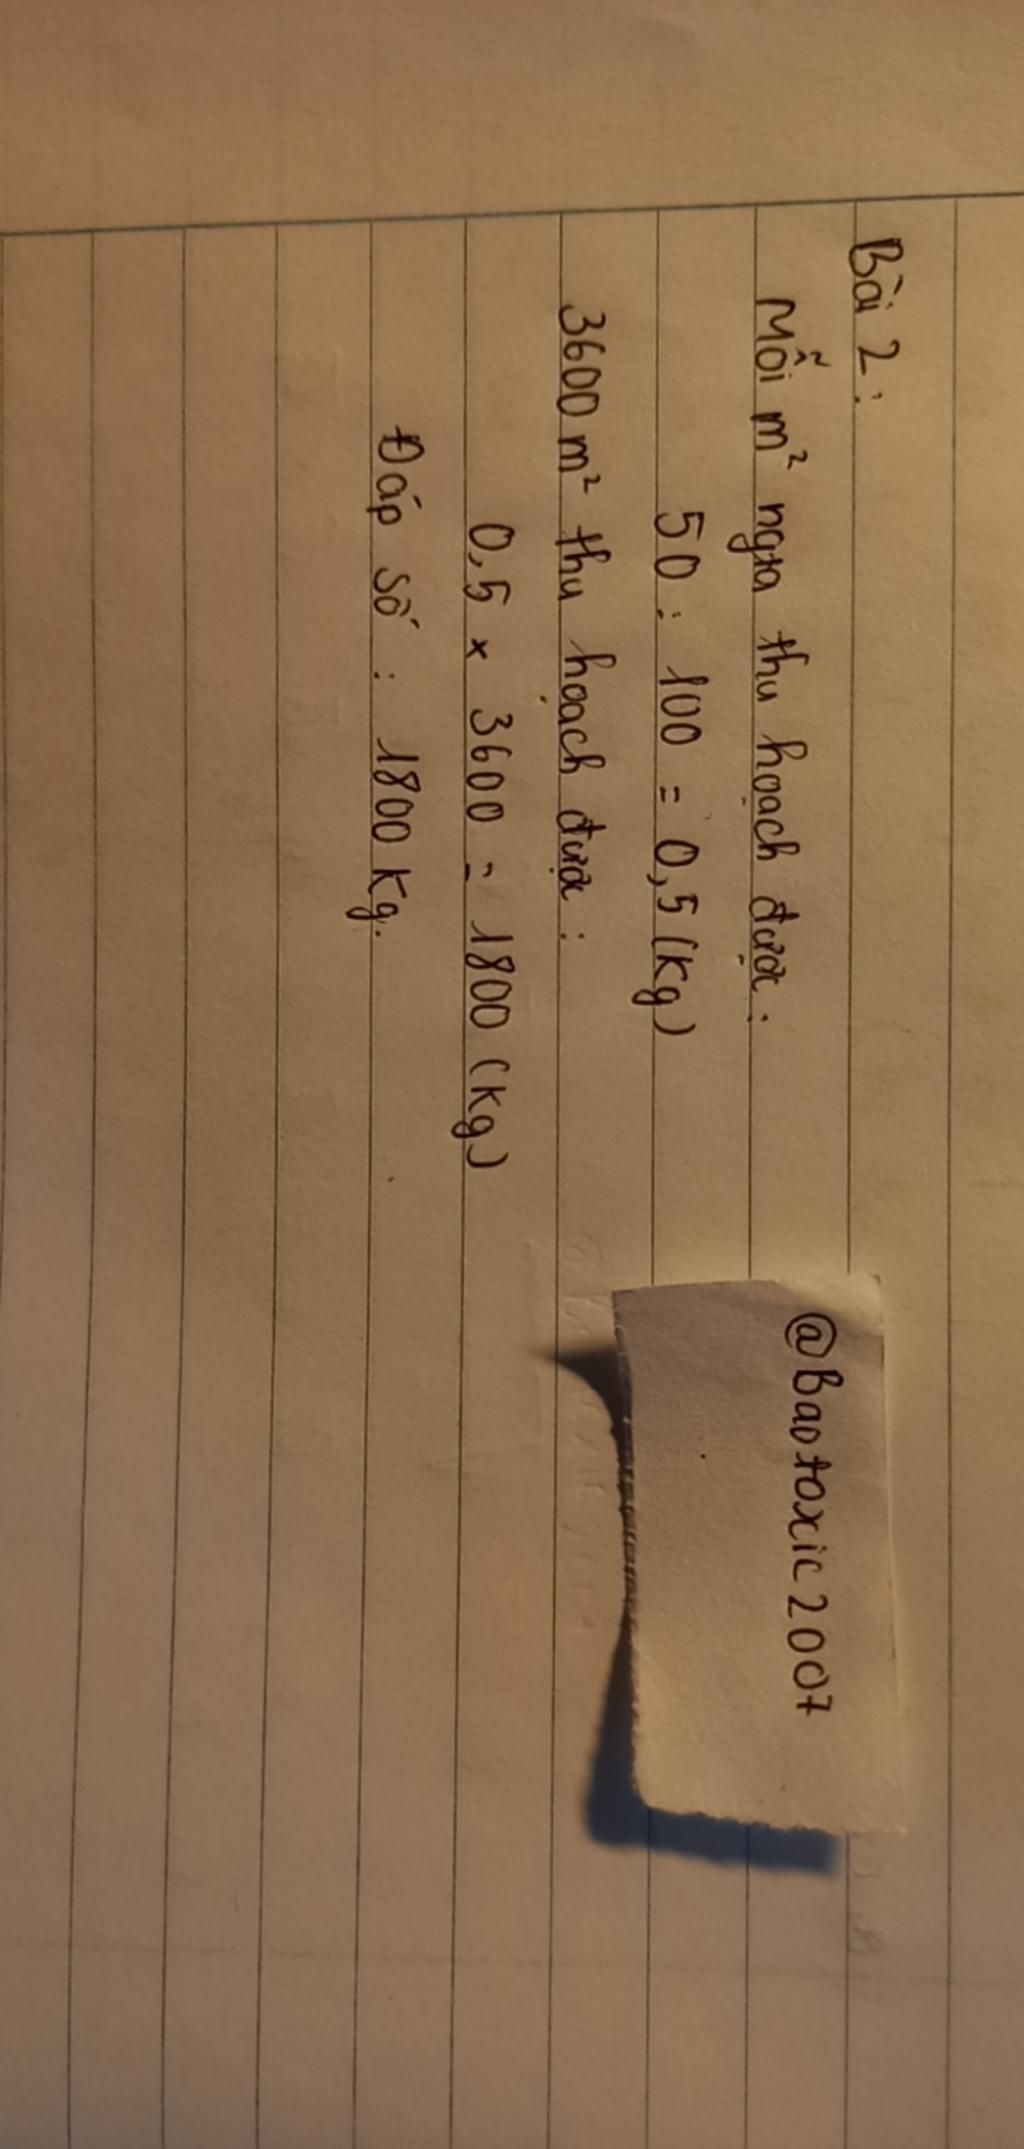 Bài 2:
Mỗi m² ngta thu hoạch được:
50 : 100 = 0,5 (kg)
3600 m² thu hoạch được:
0,5 x 3600 = 1800 (kg)
Đáp số : 1800 kg.
@Baotoxic2007